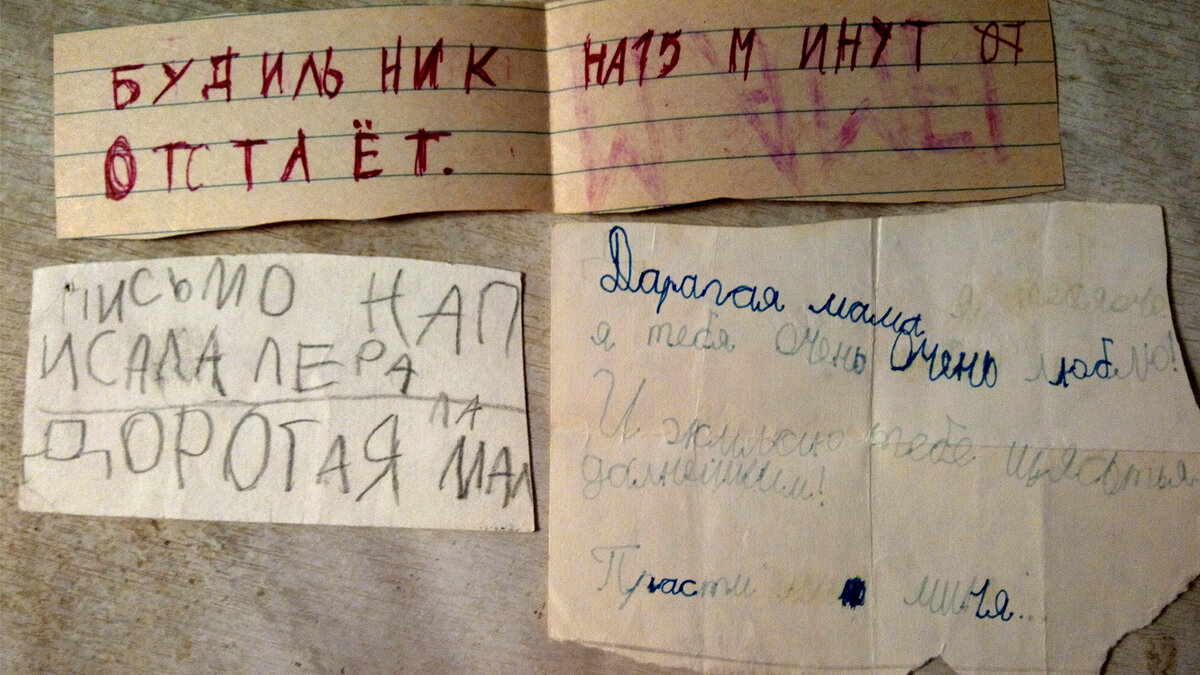 БУДИЛЬНИК НА 15 МИНУТ ОТ
ОТСТАЁТ.
ПИСЬМО НАП
ИСАЛА ЛЕРА
ЛА
ДОРОГАЯ МАМ
Дарагая мама
я тебя очень очень люблю!
И жилаю тебе щястья
далнейшим!
Прасти миня...